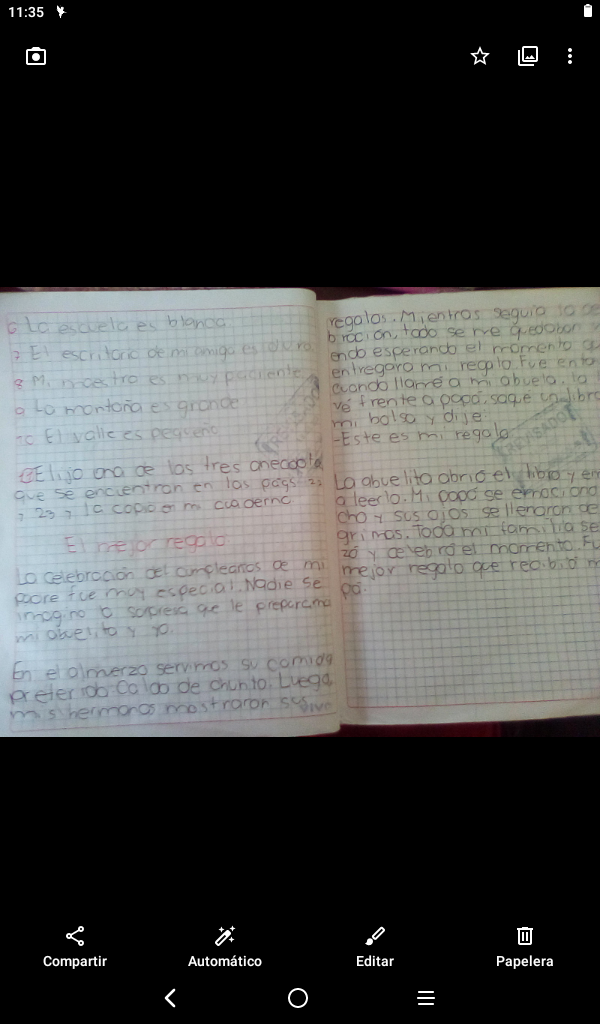 11:35
6 La escuela es blanca
7 El escritorio de mi amigo es
8 Mi maestro es muy paciente
9 La montaña es grande
10 El valle es pequeño
Elijo una de las tres anecdota
que se encuentran en las pags 22
, 23 y la copio en mi cuaderno
El mejor regalo
La celebración del cumpleaños de mi
padre fue muy especial. Nadie se
imagino la sorpresa que le preparamo
mi abuelito y yo.
En el almuerzo servimos su comida
preferida Caldo de chunto. Luego
mis hermanos mostraron sus
regalos. Mientras seguia la ce
bración, todo se me quedaban v
endo esperando el momento q
entregara mi regalo. Fue ento
cuando llamé a mi abuela, la
vé frente a papá, saqué un libro
mi bolsa y dije:
-Este es mi regalo
REVISADO
La abuelita abrió el libro y em
a leerlo. Mi papá se emociono
cho y sus ojos se llenaron de
grimas. Toda mi familia se
zó y celebró el momento. Fu
mejor regalo que recibió m
pá.
Compartir
Automático
Editar
Papelera